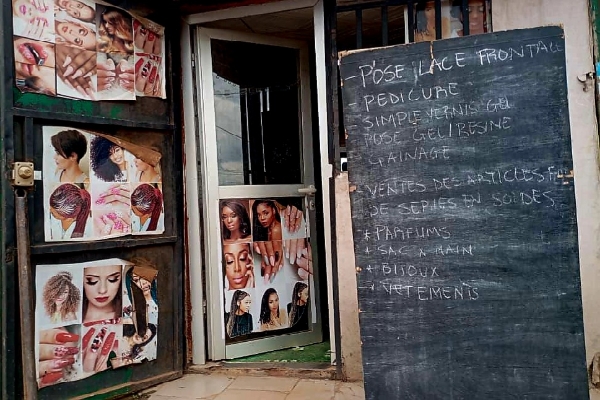 - POSE LACE FRONTALE
- PEDICURE
- SIMPLE VERNIS GEL
- POSE GEL/RESINE
- GAINAGE
- VENTES DES ARTICLES F
DE SERIES EN SOLDES
+ PARFUMS
+ SAC A MAIN
+ BIJOUX
+ VETEMENTS